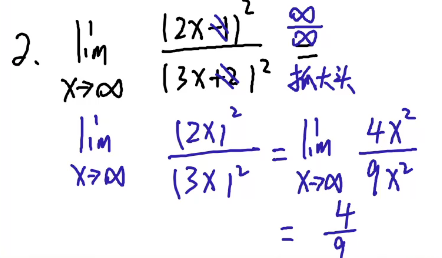 2. lim x→∞ (2x-1)² / (3x+2)² ∞/∞ 抓大头
lim x→∞ (2x)² / (3x)² = lim x→∞ 4x² / 9x²
= 4/9